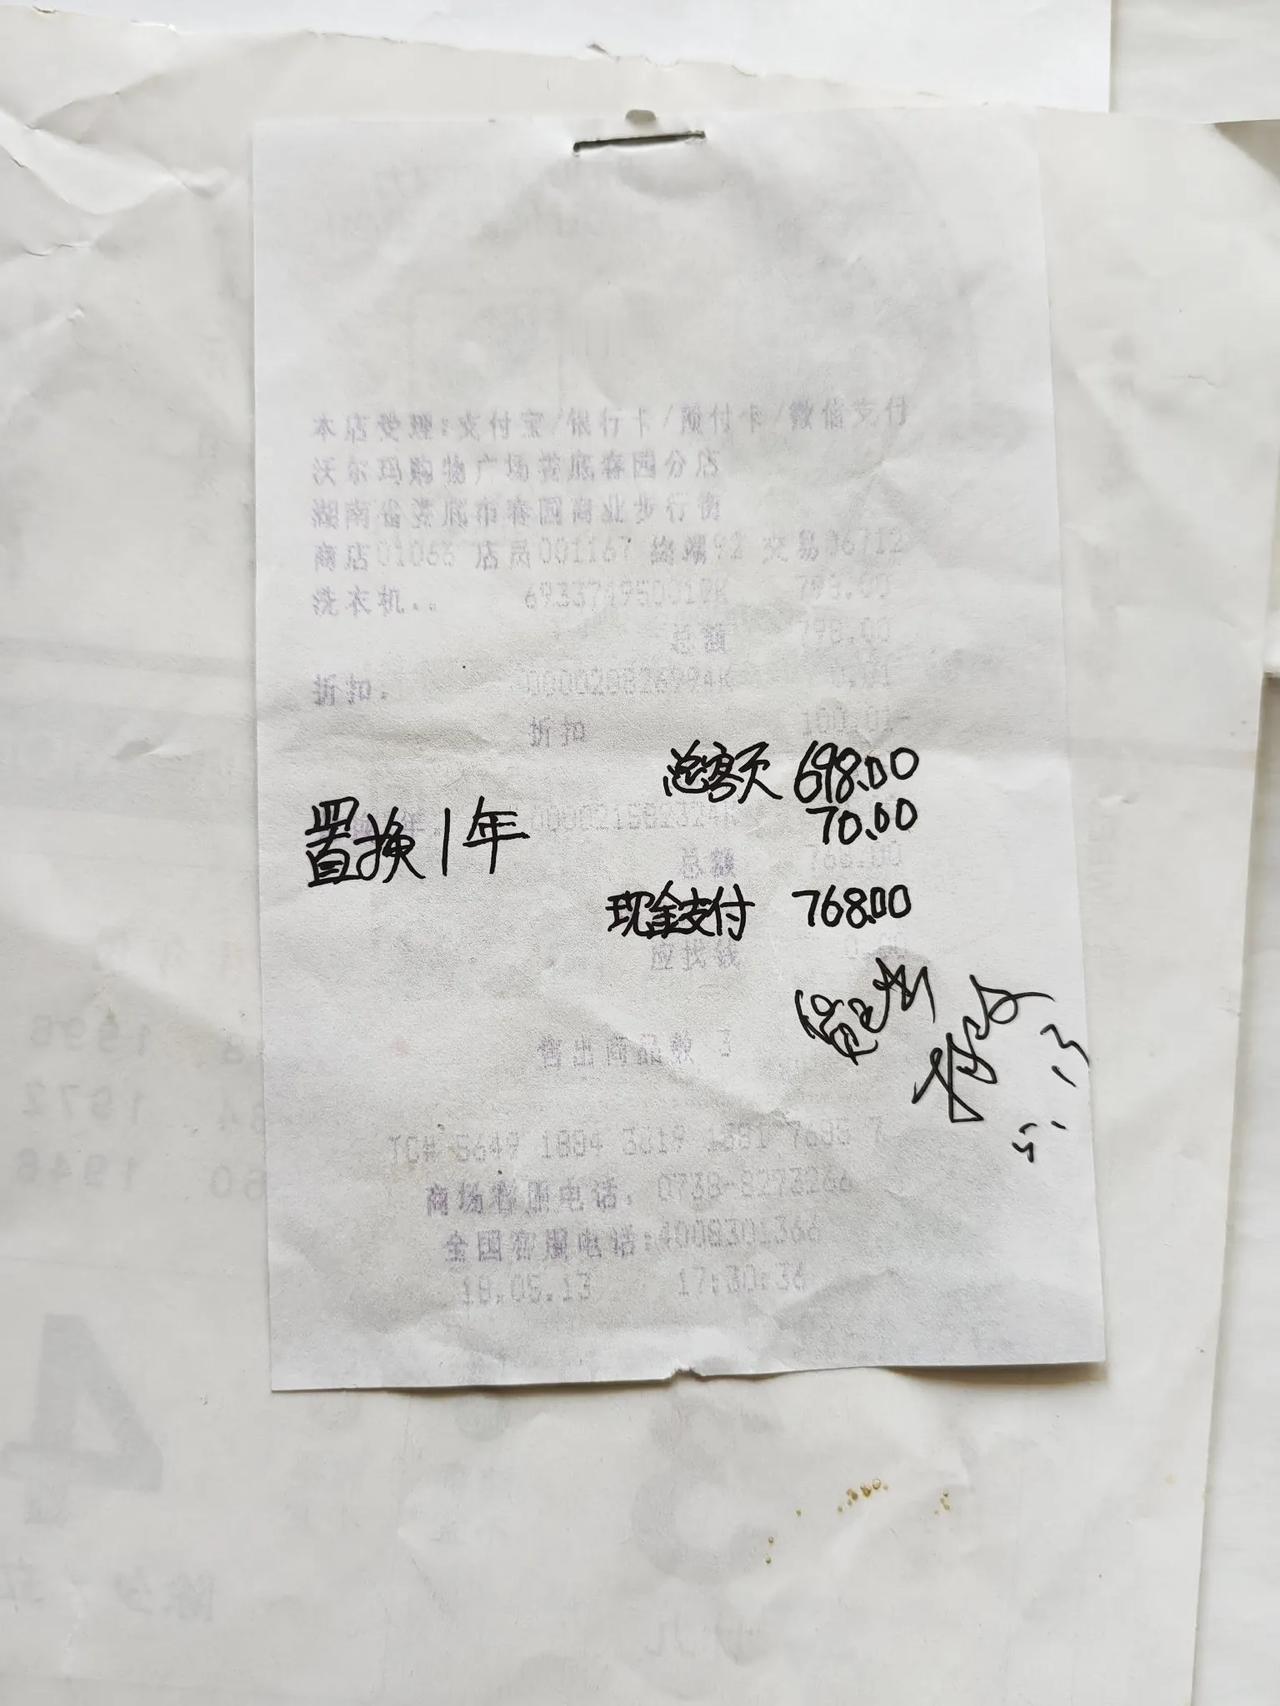 本店受理:支付宝/银行卡/预付卡/微信支付
沃尔玛购物广场娄底春园分店
湖南省娄底市春园商业步行街
商店01066 店员001167 终端92 交易06712
洗衣机.. 798.00
总额 798.00
折扣. 0000208826994K 0.01
折扣 100.01-
总额 698.00
置换1年 70.00
总额 768.00
现金支付 768.00
应找钱 0.00
售出商品数 3
TC# 5649 1884 3019
商场客服电话. 0738-8273266
全国客服电话:4008301366
18.05.13 17:30:36